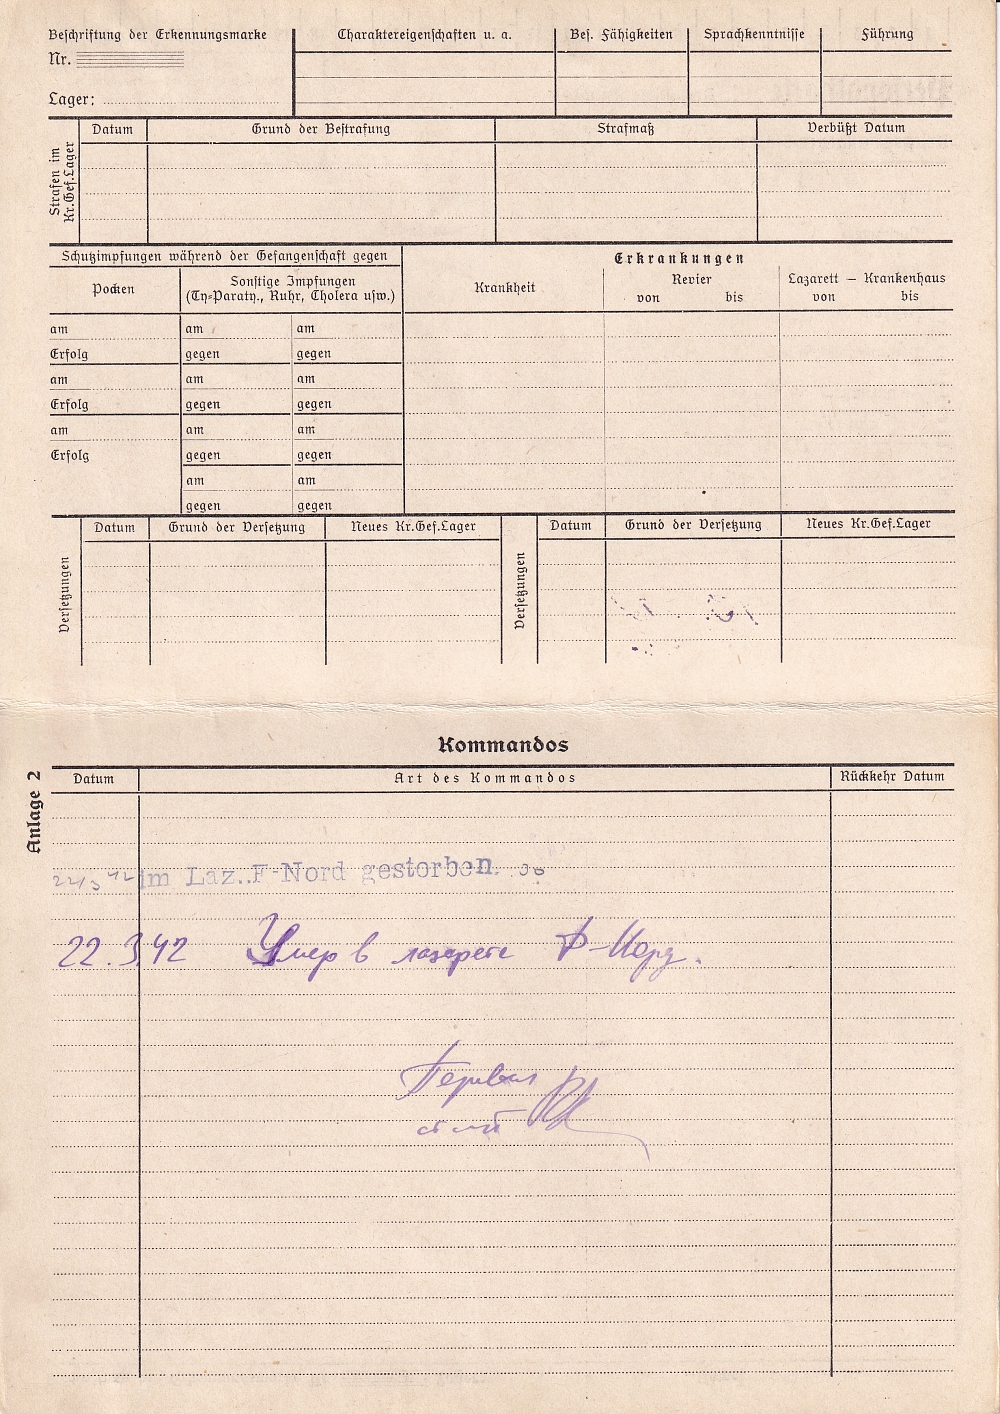 Beschriftung der Erkennungsmarke
Nr.
Lager:
Charaktereigenschaften u. a.
Bes. Fähigkeiten
Sprachkenntnisse
Führung
Strafen im
Kr.Gef.Lager
Datum
Grund der Bestrafung
Strafmaß
Verbüßt Datum
Schutzimpfungen während der Gefangenschaft gegen
Pocken
Sonstige Impfungen
(Ty=Paraty., Ruhr, Cholera usw.)
am am am
Erfolg gegen gegen
am am am
Erfolg gegen gegen
am am am
Erfolg gegen gegen
am am
gegen gegen
Erkrankungen
Krankheit
Revier
von bis
Lazarett – Krankenhaus
von bis
Versetzungen
Datum
Grund der Versetzung
Neues Kr.Gef.Lager
Versetzungen
Datum
Grund der Versetzung
Neues Kr.Gef.Lager
Kommandos
Anlage 2
Datum
Art des Kommandos
Rückkehr Datum
22/3 42 Im Laz. F-Nord gestorben.
22.3.42 Умер в лазарете Ф-Норд.